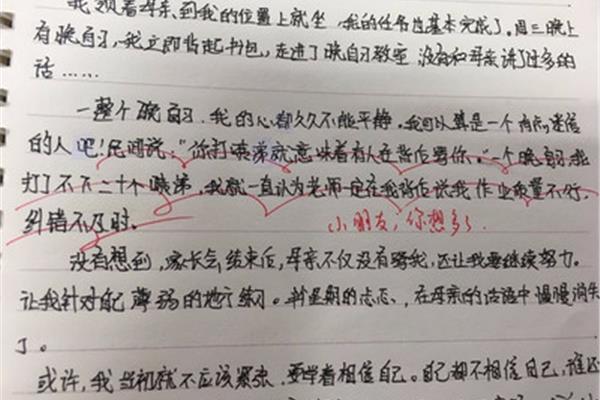 我领着母亲到我的位置上就坐，我的任务也基本完成了。周三晚上
有晚自习，我立即背起书包，走进了晚自习教室，没有和母亲讲了过多的
话……
一整个晚自习，我的心都久久不能平静，我可以算是一个有点迷信
的人吧！民间说，“你打喷嚏就意味着有人在背后骂你。”一个晚自习，我
打了不下二十个喷嚏，我就一直认为老师一定在我背后说我作业布置不好，
纠错不及时。
小朋友，你想多了。
没有想到，家长会结束后，母亲不仅没有骂我，还让我要继续努力。
让我针对自己薄弱的地方练习。一个星期的忐忑、，在母亲的话语中慢慢消失
了。
或许，我当初就不应该紧张，要学着相信自己。自己都不相信自己，谁还